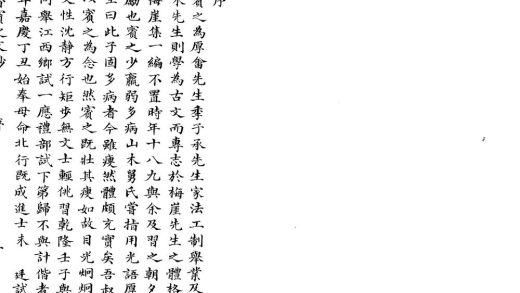 序
賓之為原畬先生季子承先生家法工制舉業及
承先生則學為古文而專志於梅崖先生之體格
梅崖集一編不置時年十八九與余及習之朝夕
勵也賓之少羸弱多病山木舅氏嘗指用光語原
生曰此子固多病者今雖瘦然體頗充實矣吾叔
以賓之為念也然賓之既壯其瘦如故目光炯炯
文性沈静方行矩步無文士輕佻習乾隆壬子與
同舉江西鄉試一應禮部試下第歸不與計偕者
年嘉慶丁丑始奉母命北行既成進士未 廷試
賓之文鈔 序 一